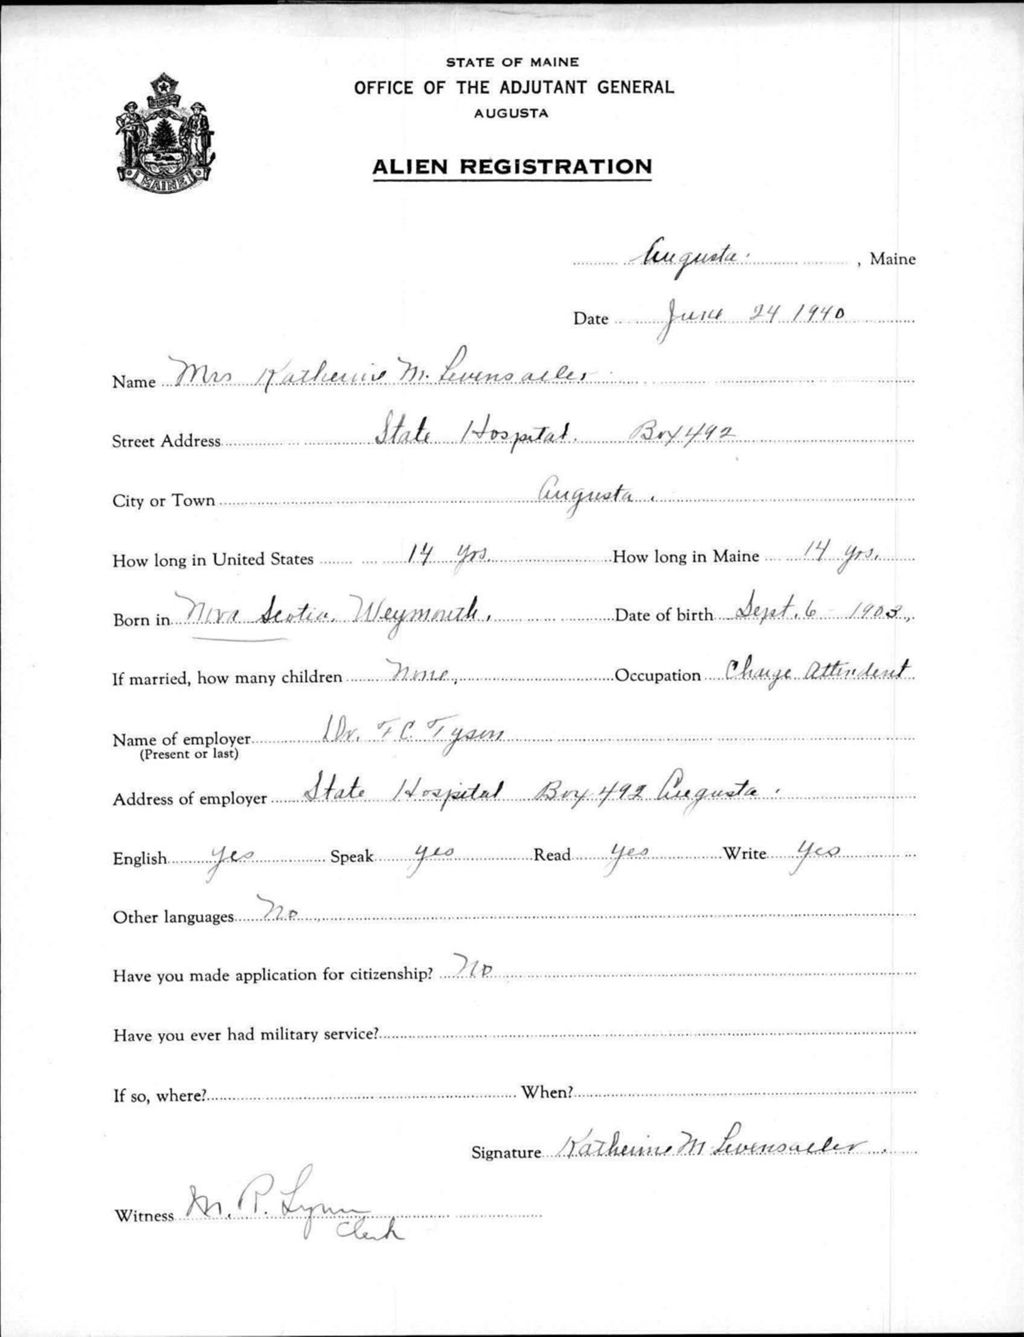 STATE OF MAINE
OFFICE OF THE ADJUTANT GENERAL
AUGUSTA
ALIEN REGISTRATION
MAINE
Augusta. , Maine
Date June 24 1940
Name Mrs Katherine M. Levensaeler
Street Address State Hospital. Box 492
City or Town Augusta.
How long in United States 14 yrs. How long in Maine 14 yrs.
Born in Nova Scotia. Weymouth. Date of birth Sept. 6 - 1903.
If married, how many children None. Occupation Charge Attendent
Name of employer Dr. F C. Tyson
(Present or last)
Address of employer State Hospital Box 492 Augusta.
English yes Speak yes Read yes Write yes
Other languages No
Have you made application for citizenship? No
Have you ever had military service?
If so, where? When?
Signature Katherine M Levensaeler.
Witness M. P. Lynn
Clerk